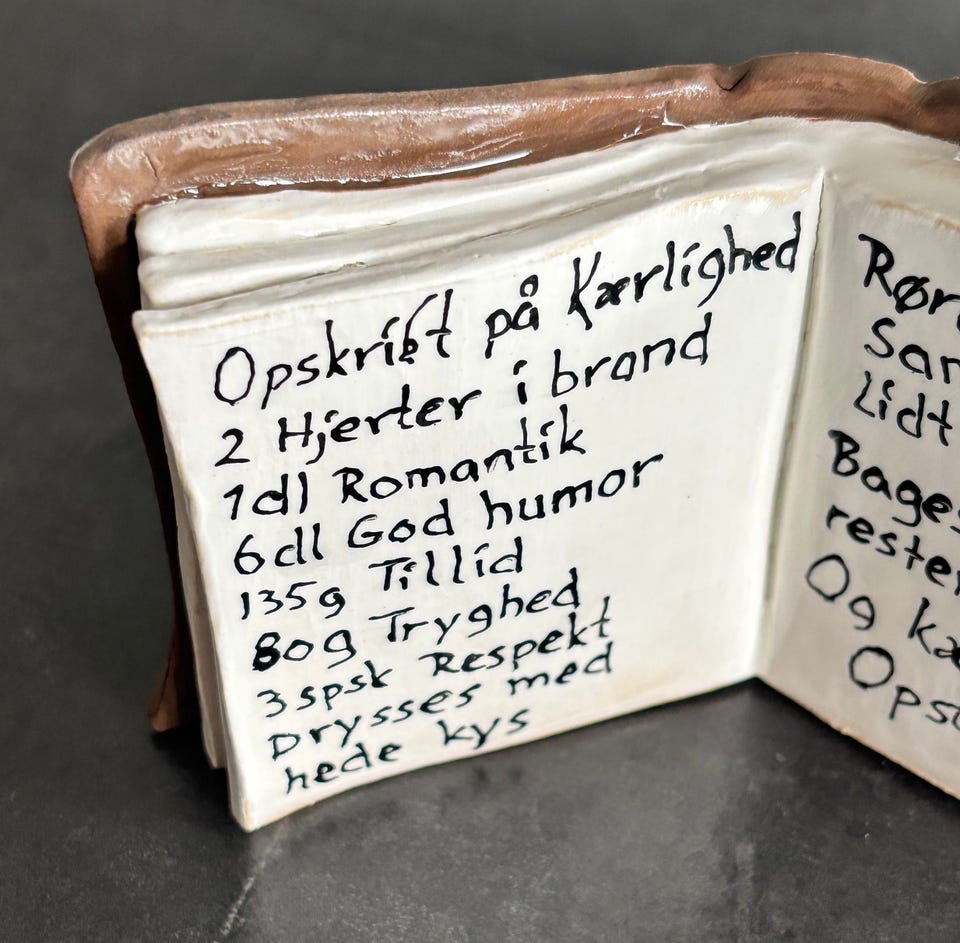 Opskrift på Kærlighed
2 Hjerter i brand
1dl Romantik
6dl God humor
135g Tillid
80g Tryghed
3spsk Respekt
Drysses med
hede kys
Lidt
Og